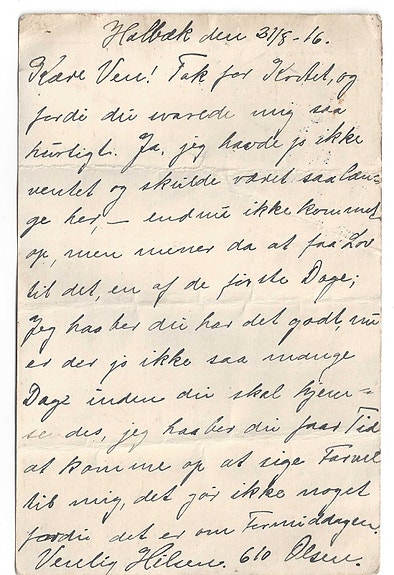 Holbæk den 31/8-16.
Kære Ven! Tak for Kortet, og
fordi du svarede mig saa
hurtigt. Ja, jeg havde jo ikke
ventet og skulde været saa Læn-
ge her, – endnu ikke kommet
op, men mener da at faa Lov
til det, en af de første Dage;
Jeg haaber du har det godt, nu
er der jo ikke saa mange
Dage inden du skal hjem-
sendes, jeg haaber du faar Tid
at komme op at sige Farvel
til mig, det gør ikke noget
fordi det er om Formiddagen.
Venlig Hilsen. 610 Olsen.